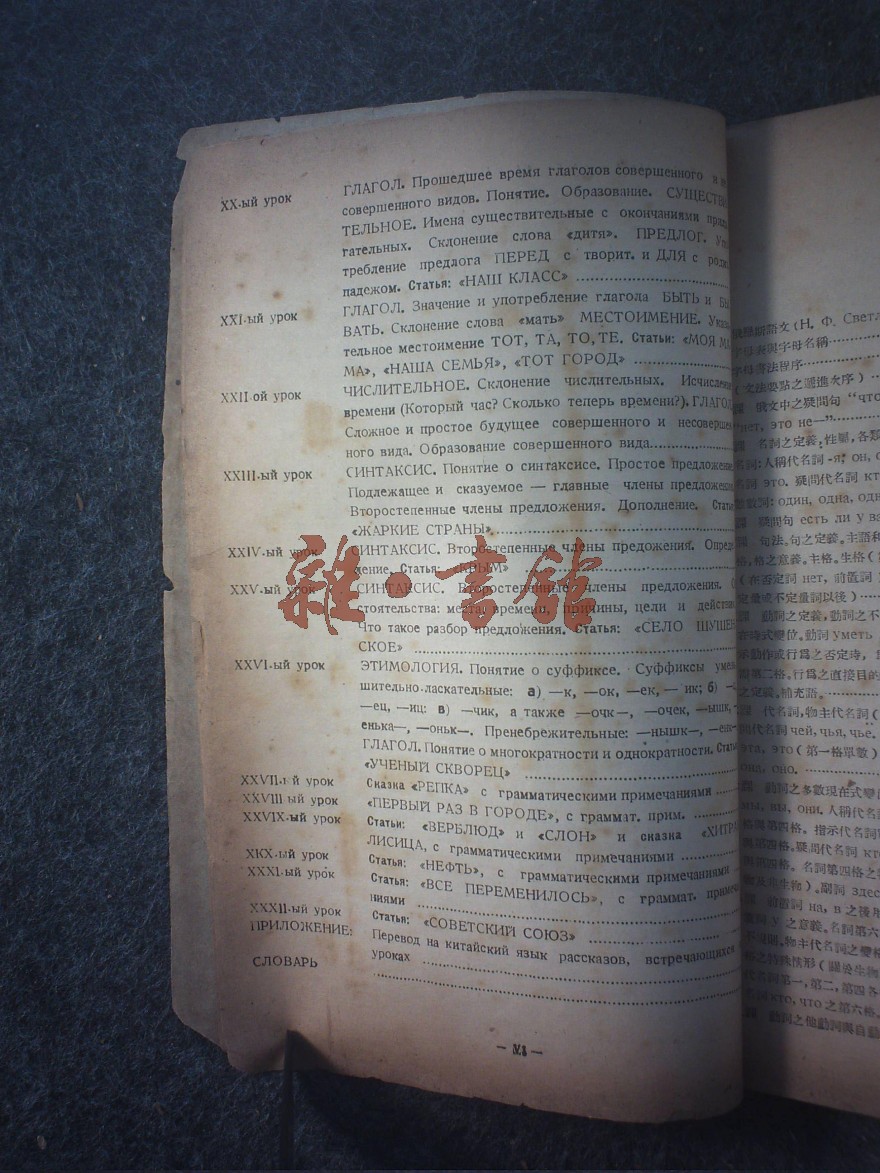 XX-ый урок ГЛАГОЛ. Прошедшее время глаголов совершенного и
совершенного видов. Понятие. Образование. СУЩЕСТВИ
ТЕЛЬНОЕ. Имена существительные с окончаниями прила
гательных. Склонение слова «дитя». ПРЕДЛОГ. Упо
требление предлога ПЕРЕД с творит. и ДЛЯ с роди
падежом. Статья: «НАШ КЛАСС»
XXI-ый урок ГЛАГОЛ. Значение и употребление глагода БЫТЬ и БЫ
ВАТЬ. Склонение слова «мать» МЕСТОИМЕНИЕ. Указа
тельное местоимение ТОТ, ТА, ТО, ТЕ. Статьи: «МОЯ МА
МА», «НАША СЕМЬЯ», «ТОТ ГОРОД»
XXII-ой урок ЧИСЛИТЕЛЬНОЕ. Склонение числительных. Исчисление
времени (Который час? Сколько теперь времени?). ГЛАГОЛ
Сложное и простое будущее совершенного и несовершен
ного вида. Образование совершенного вида
XXIII-ый урок СИНТАКСИС. Понятие о синтаксисе. Простое предложение
Подлежащее и сказуемое — главные члены предложения
Второстепенные члены предложения. Дополнение. Статья
«ЖАРКИЕ СТРАНЫ»
XXIV-ый урок СИНТАКСИС. Второстепенные члены предожения. Опреде
дение. Статья: «КРЫМ»
XXV-ый урок СИНТАКСИС. Второстепинные члены предложения. О
стоятельства: места, времени, причины, цели и действия
Что такое разбор предложения. Статья: «СЕЛО ШУШЕН
СКОЕ»
XXVI-ый урок ЭТИМОЛОГИЯ. Понятие о суффиксе. Суффиксы умень
шительно-ласкательные: а) —к, —ок, —ек, — ик; б) —
—ец, —иц: в) —чик, а также —очк—, —очек, —ышк,
енька—, —оньк—. Пренебрежительные: —нышк—,
ГЛАГОЛ. Понятие о многократности и однократности. Статья
«УЧЕНЫЙ СКВОРЕЦ»
XXVII-й урок Сказка «РЕПКА» с грамматическими примечаниями
XXVIII-ый урок «ПЕРВЫЙ РАЗ В ГОРОДЕ», с граммат. прим.
XXVIX-ый урок Статьи: «ВЕРБЛЮД» и «СЛОН» и сказка «ХИТРА
ЛИСИЦА, с грамматическими примечаниями
XKX-ый урок Статья: «НЕФТЬ», с грамматическими примечаниями
XXXI-ый урок Статья: «ВСЕ ПЕРЕМЕНИЛОСЬ», с граммат. примеча
ниями
XXXII-ый урок Статья: «СОВЕТСКИЙ СОЮЗ»
ПРИЛОЖЕНИЕ: Перевод на китайский язык рассказов, встречающихся
уроках
СЛОВАРЬ
雜·書館
語文 (Н. Ф. Светл
字母表與字母名稱
字母書法程序
(文法要點之遞進次序)
課 俄文中之疑問句 “что
нет, это не—”
課 名詞之定義,性屬,各類
名詞:人稱代名詞 -я, он, о
詞 это. 疑問代名詞 кт
數詞: один, одна, одн
課 疑問句 есть ли у ва
課 句法,句之定義。主語和
格,格之意義。主格。生格(
(在否定詞 нет, 前置詞
定量或不定量詞以後)
課 動詞之定義,動詞之不
在時式變位。動詞 уметь
示動作或行爲之否定時,
第二格。行爲之直接目的
之定義。補充語。
課 代名詞,物主代名詞(
問代名詞 чей, чья, чье.
эта, это (第一格單數)
она, оно.
課 動詞之多數現在式變位
мы, вы, они. 人稱代名
第四格。指示代名詞
第四格。疑問代名詞 кт
第四格。名詞第四格之
及非生物)。副詞 здес
課 前置詞 на, в 之後用
詞 у 之意義。名詞第六
物主代名詞之變格
之特殊情形(關於生物
代名詞第一,第二,第四各
名詞 кто, что 之第六格。
課 動詞之他動詞與自動